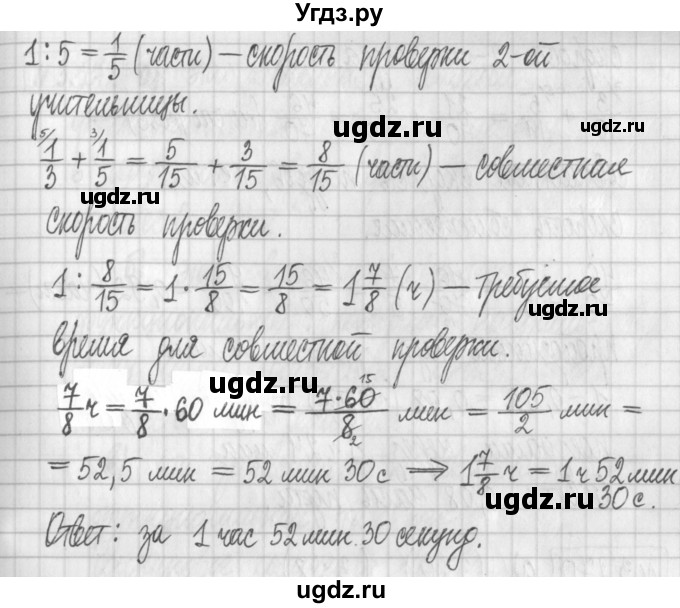 Угдз.ру
1 : 5 = 1/5 (части) – скорость проверки 2-ой
учительницы.
ugdz.ru
ugdz.ru
5/ 1/3 + 3/ 1/5 = 5/15 + 3/15 = 8/15 (части) – совместная
ugdz.ru
скорость проверки.
1 : 8/15 = 1 · 15/8 = 15/8 = 1 7/8 (ч) – требуемое
ugdz.ru
время для совместной проверки.
ugdz.ru
7/8 ч = 7/8 · 60 мин = 7·60 15/8 2 мин = 105/2 мин =
= 52,5 мин = 52 мин 30 с ⇒ 1 7/8 ч = 1 ч 52 мин
ugdz.ru
30 с.
Ответ: за 1 час 52 мин. 30 секунд.
ugdz.ru
ugdz.ru